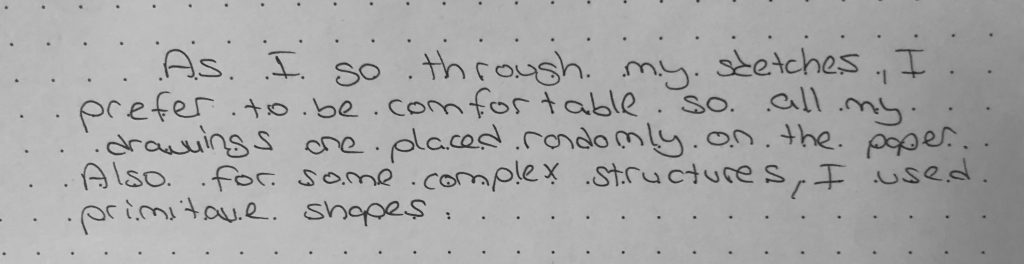 As I go through my sketches, I
prefer to be comfortable so all my
drawings are placed randomly on the paper.
Also for some complex structures, I used
primitave shapes.